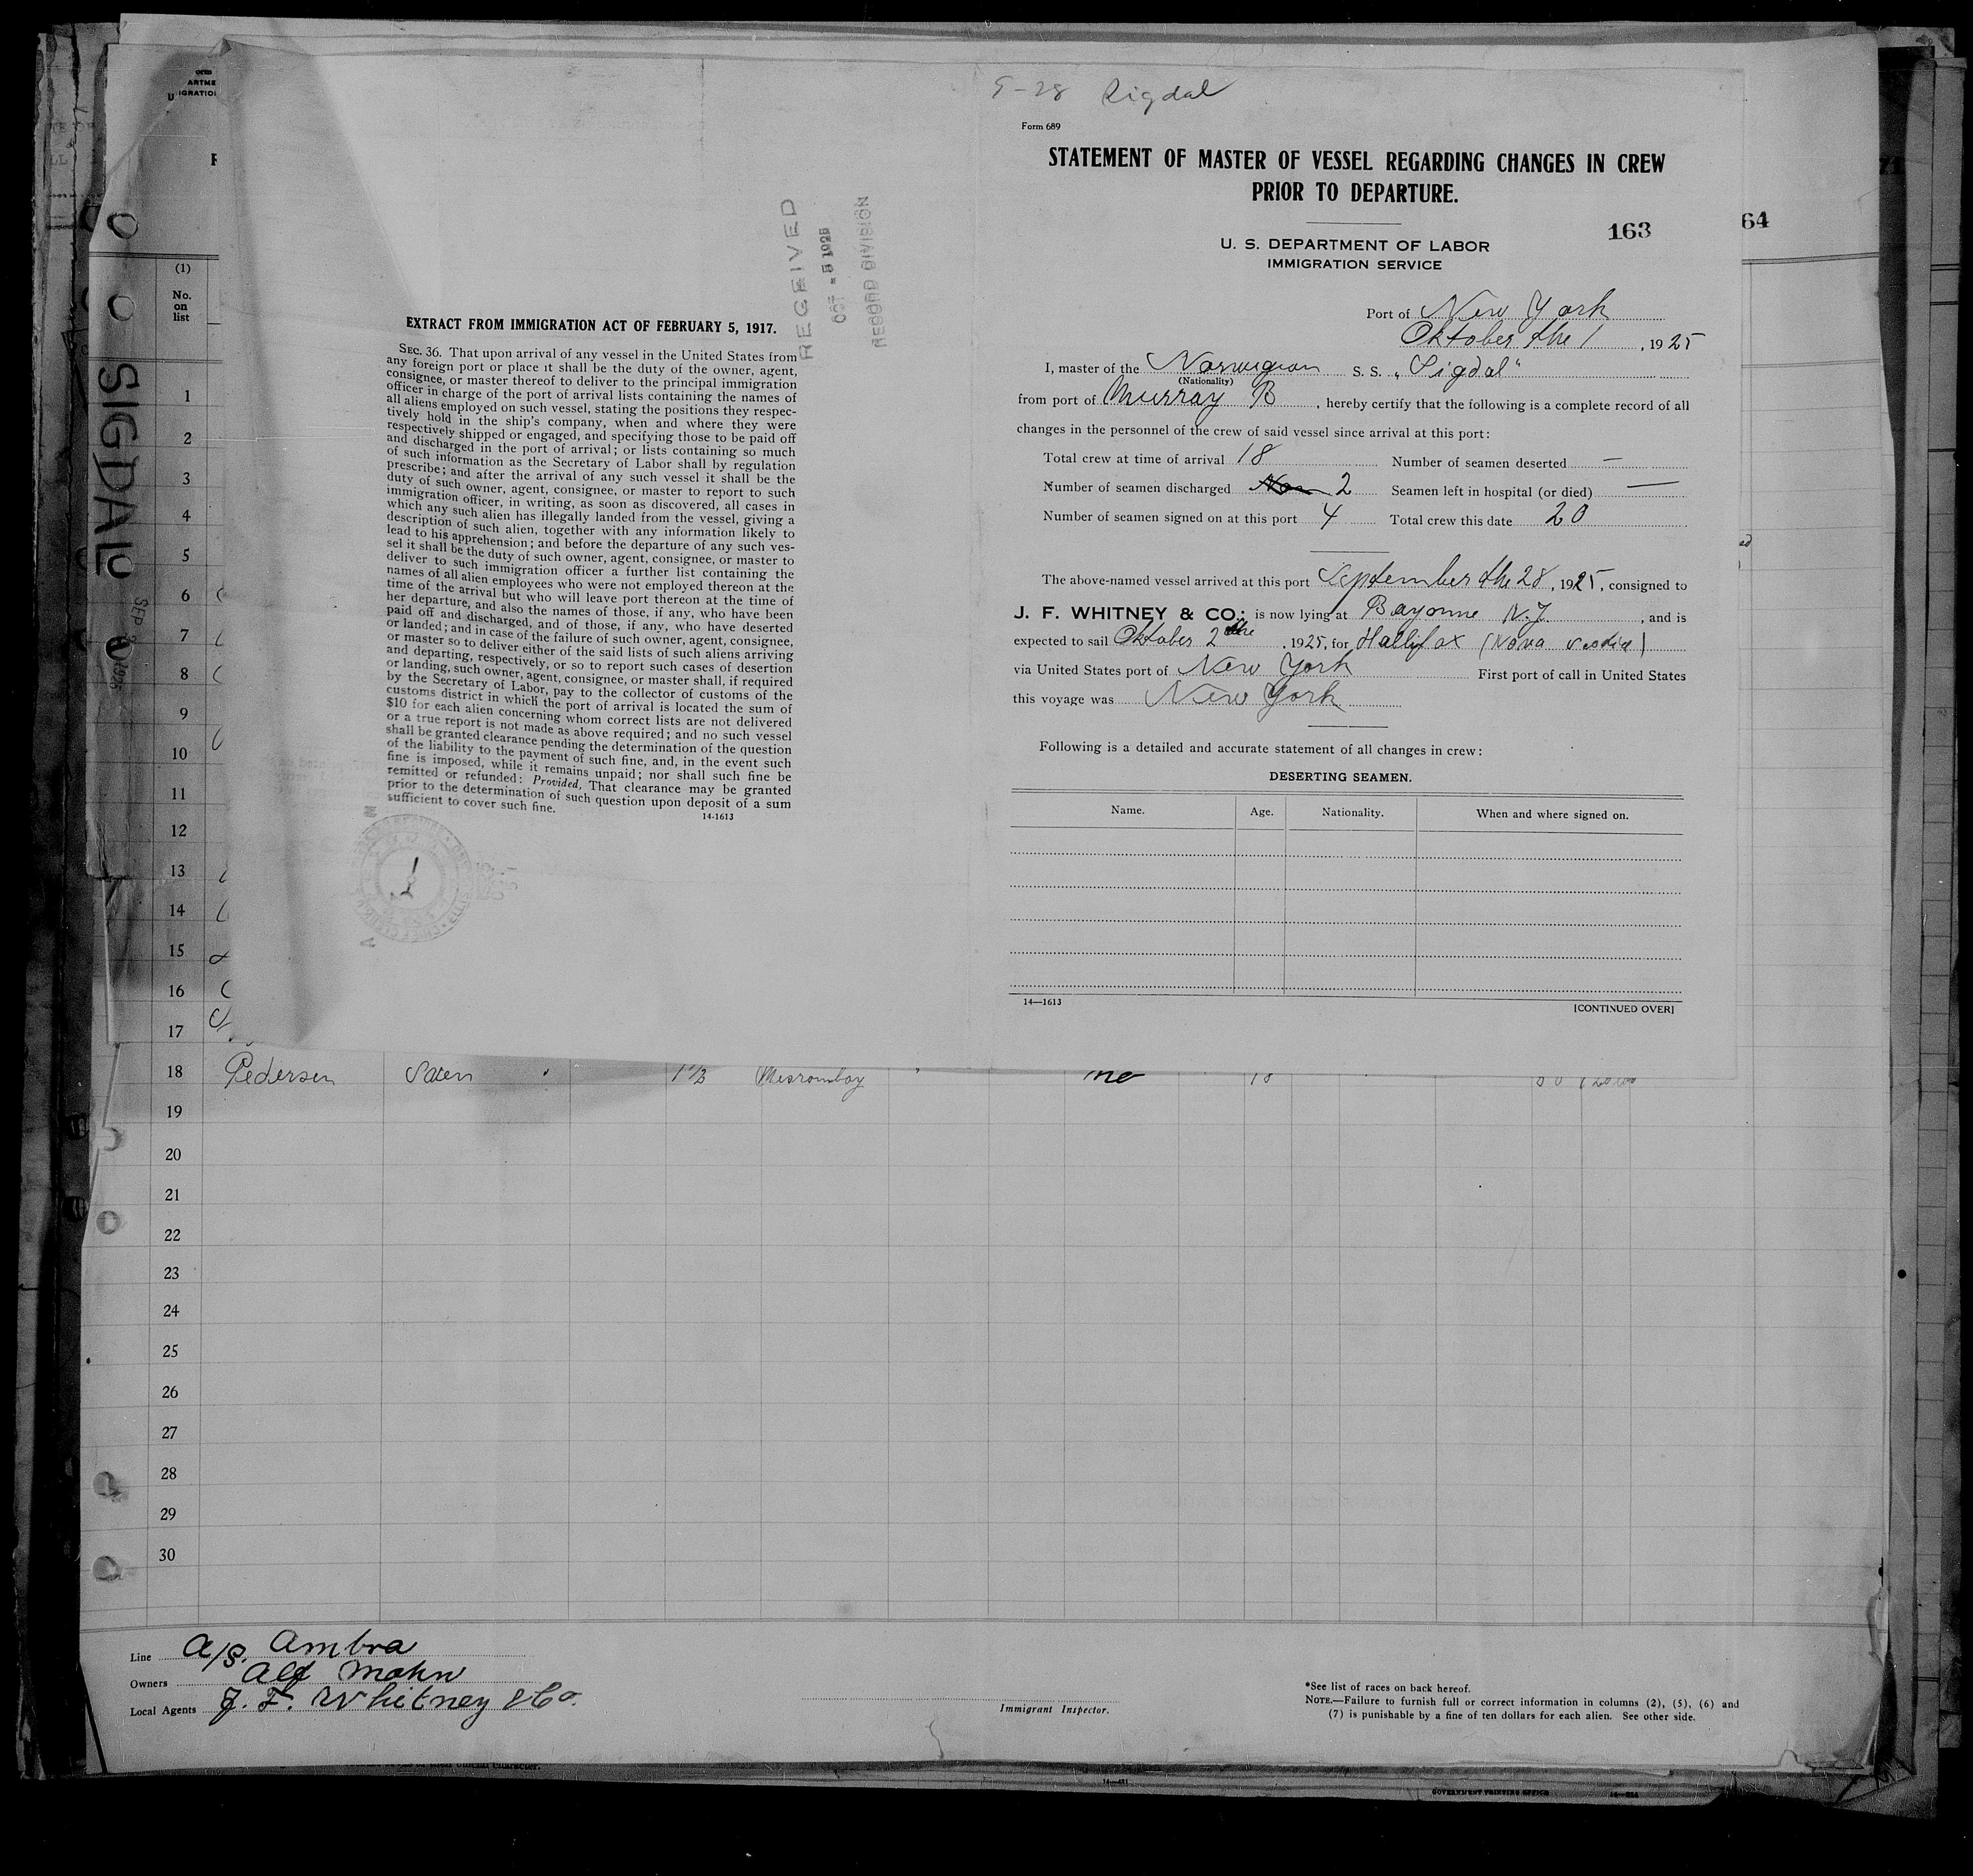 9-28 Sigdal
Form 689
STATEMENT OF MASTER OF VESSEL REGARDING CHANGES IN CREW
PRIOR TO DEPARTURE.
163
64
U. S. DEPARTMENT OF LABOR
IMMIGRATION SERVICE
Port of New York
Oktober the 1, 1925
I, master of the Norwegian S. S. „Sigdal“
(Nationality)
from port of Murray B, hereby certify that the following is a complete record of all
changes in the personnel of the crew of said vessel since arrival at this port:
Total crew at time of arrival 18 Number of seamen deserted —
Number of seamen discharged 2 Seamen left in hospital (or died) —
Number of seamen signed on at this port 4 Total crew this date 20
The above-named vessel arrived at this port September the 28, 1925, consigned to
J. F. WHITNEY & CO. is now lying at Bayonne N.J., and is
expected to sail Oktober 2 the, 1925, for Hallifax (Nova Scodia)
via United States port of New York First port of call in United States
this voyage was New York
Following is a detailed and accurate statement of all changes in crew:
DESERTING SEAMEN.
Name. Age. Nationality. When and where signed on.
14—1613
[CONTINUED OVER]
RECEIVED
OCT - 5 1925
RECORD DIVISION
EXTRACT FROM IMMIGRATION ACT OF FEBRUARY 5, 1917.
SEC. 36. That upon arrival of any vessel in the United States from
any foreign port or place it shall be the duty of the owner, agent,
consignee, or master thereof to deliver to the principal immigration
officer in charge of the port of arrival lists containing the names of
all aliens employed on such vessel, stating the positions they respec-
tively hold in the ship's company, when and where they were
respectively shipped or engaged, and specifying those to be paid off
and discharged in the port of arrival; or lists containing so much
of such information as the Secretary of Labor shall by regulation
prescribe; and after the arrival of any such vessel it shall be the
duty of such owner, agent, consignee, or master to report to such
immigration officer, in writing, as soon as discovered, all cases in
which any such alien has illegally landed from the vessel, giving a
description of such alien, together with any information likely to
lead to his apprehension; and before the departure of any such ves-
sel it shall be the duty of such owner, agent, consignee, or master to
deliver to such immigration officer a further list containing the
names of all alien employees who were not employed thereon at the
time of the arrival but who will leave port thereon at the time of
her departure, and also the names of those, if any, who have been
paid off and discharged, and of those, if any, who have deserted
or landed; and in case of the failure of such owner, agent, consignee,
or master so to deliver either of the said lists of such aliens arriving
and departing, respectively, or so to report such cases of desertion
or landing, such owner, agent, consignee, or master shall, if required
by the Secretary of Labor, pay to the collector of customs of the
customs district in which the port of arrival is located the sum of
$10 for each alien concerning whom correct lists are not delivered
or a true report is not made as above required; and no such vessel
shall be granted clearance pending the determination of the question
of the liability to the payment of such fine, and, in the event such
fine is imposed, while it remains unpaid; nor shall such fine be
remitted or refunded: Provided, That clearance may be granted
prior to the determination of such question upon deposit of a sum
sufficient to cover such fine.
14-1613
SIGDAL
(1)
No.
on
list
1
2
3
4
5
6
7
8
9
10
11
12
13
14
15
16
17
18 Pedersen Messromboy no 18
19
20
21
22
23
24
25
26
27
28
29
30
Line A/S. Ambra
Owners Alf Mohn
Local Agents J. F. Whitney & Co.
Immigrant Inspector.
*See list of races on back hereof.
NOTE.—Failure to furnish full or correct information in columns (2), (5), (6) and
(7) is punishable by a fine of ten dollars for each alien. See other side.
GOVERNMENT PRINTING OFFICE